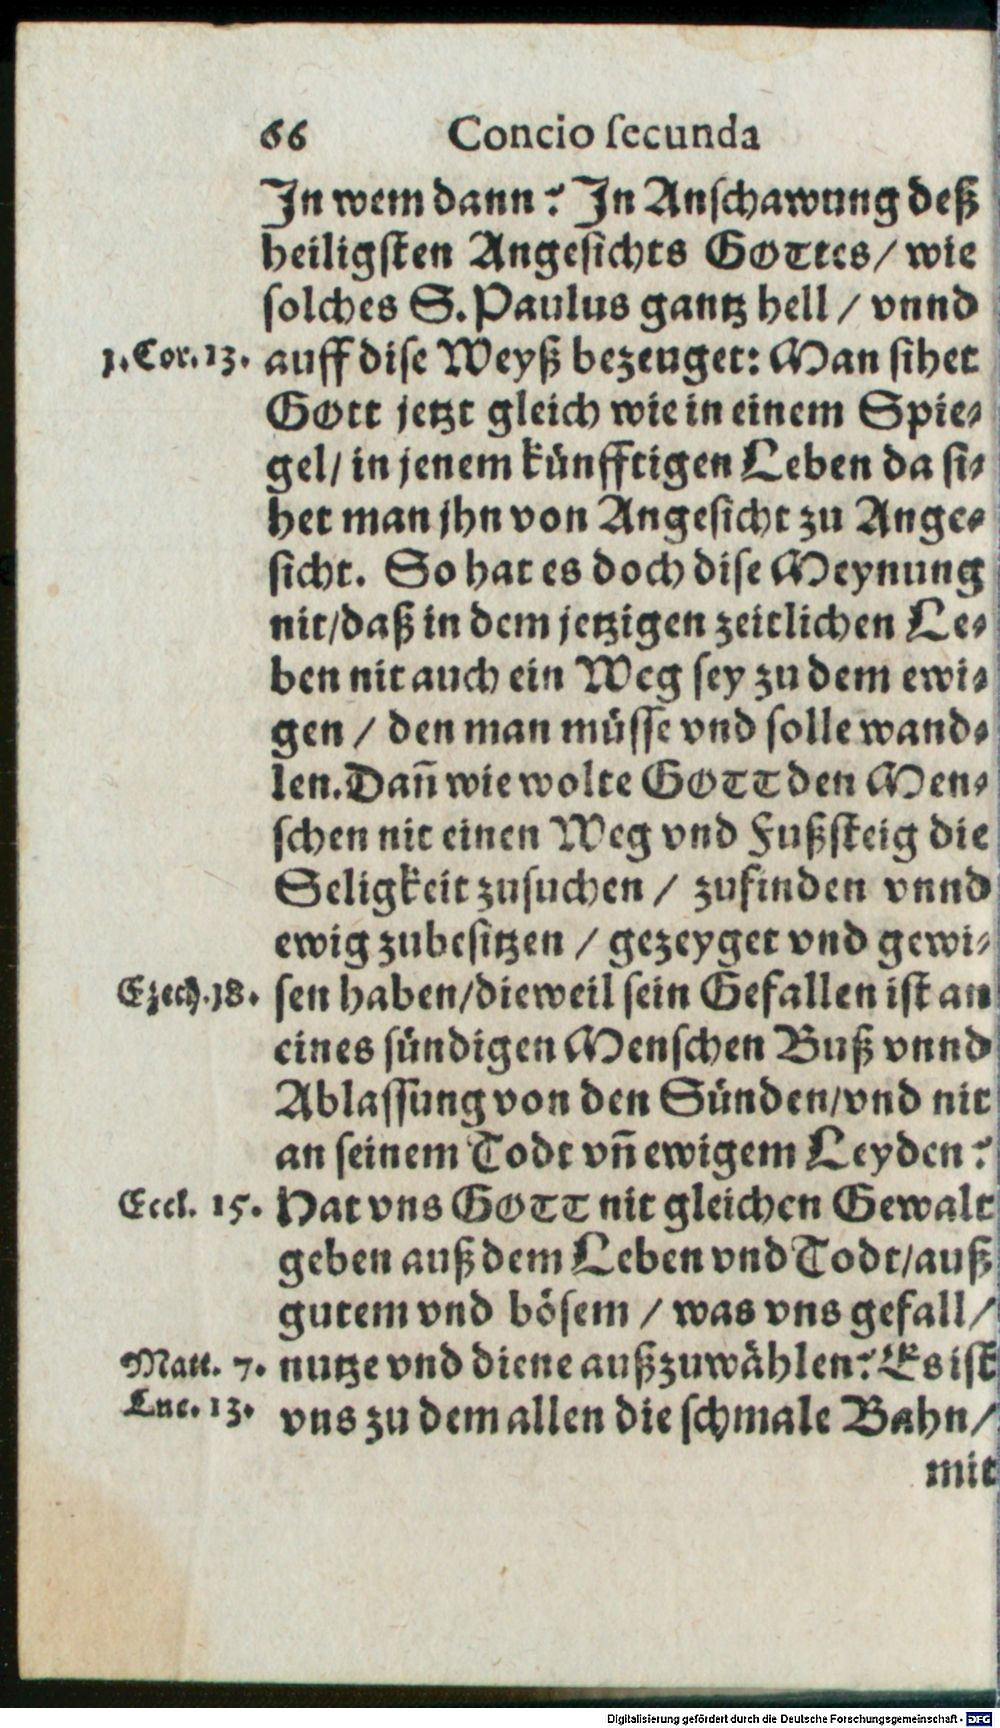 66 Concio ſecunda
In wem dann? In Anſchawung deß
heiligſten Angeſichts GOttes/ wie
ſolches S. Paulus gantz hell / vnnd
1. Cor. 13. auff diſe Weyß bezeuget: Man ſihet
Gott jetzt gleich wie in einem Spie⸗
gel/ in jenem künfftigen Leben da ſi⸗
het man jhn von Angeſicht zu Ange⸗
ſicht. So hat es doch diſe Meynung
nit/daß in dem jetzigen zeitlichen Le⸗
ben nit auch ein Weg ſey zu dem ewi⸗
gen / den man müſſe vnd ſolle wand⸗
len. Dañ wie wolte GOTT den Men⸗
ſchen nit einen Weg vnd Fußſteig die
Seligkeit zuſuchen / zufinden vnnd
ewig zubeſitzen / gezeyget vnd gewi⸗
Ezech. 18. ſen haben/dieweil ſein Gefallen iſt an
eines ſündigen Menſchen Buß vnnd
Ablaſſung von den Sünden/vnd nit
an ſeinem Todt vñ ewigem Leyden?
Eccl. 15. Hat vns GOTT nit gleichen Gewalt
geben auß dem Leben vnd Todt/auß
gutem vnd böſem / was vns gefall/
Matt. 7. nutze vnd diene außzuwählen? Es iſt
Luc. 13. vns zu dem allen die ſchmale Bahn/
mit
Digitalisierung gefördert durch die Deutsche Forschungsgemeinschaft - DFG